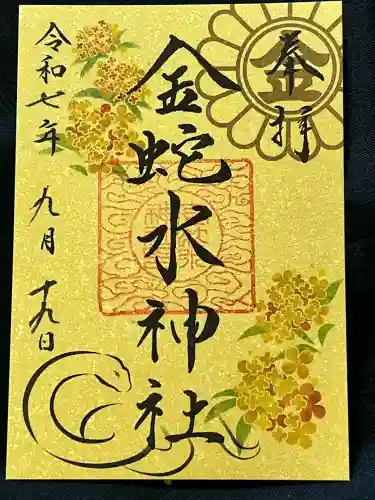 奉拝
金蛇水神社
令和七年 九月 十九日